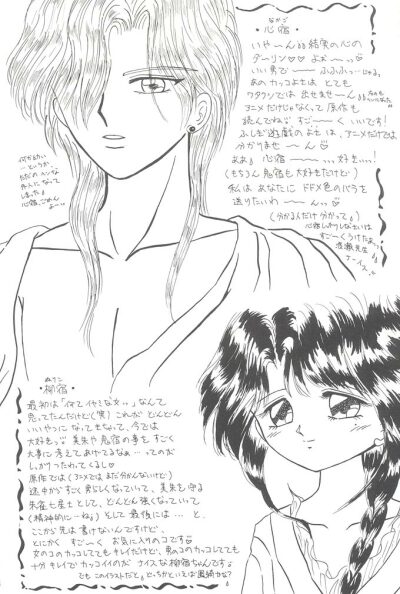 なかご
・心宿・
いや〜ん♪♪結実の心の
ダーリン♡♡ よぉ〜っっ♡
いい男で〜 ふふふっ…じゅる。
あの カッコよさは とても
ワタクシでは 出せませ〜ん♪♪
アニメだけじゃなくって 原作も
読んでね♡ すご〜く いいです!
ふしぎ遊戯のよさは、アニメだけでは
分かりませ〜ん♡
ああ♪ 心宿 ……、…好き…、…!
(もちろん 鬼宿も 大好きだけど)
私は あなたに ドドメ色のバラを
送りたいわ 〜んっっ♡
(分かる人だけ 分かって♪)
すご〜くうけたぁっ
渡瀬先生
ナーイスっ
何かみたい
…というか、
ただの ヘンな
外人になって
しまった♪
心宿、ごめん
よーっっ
ぬりこ
・柳宿・
最初は「何てイヤミな女っっ」なんて
思ってたんだけど(笑) これが どんどん
いいやつに なってきちゃって、今では
大好きっっ♡ 美朱や鬼宿の事を すごく
大事に 考えてあげてるなぁ…ってのが
しっかり つたわってくるし♡
原作では(アニメではまだ分かんないけど)
途中から すごく 男らしくなっていって、美朱を守る
朱雀七星士として、どんどん強くなっていって
(精神的に…ね♪) そして 最後には …と、
ここから先は 書けないんですけど、
とにかく すご〜く お気に入りのコです♡
女のコのカッコしてても キレイだけど、男のコのカッコしてても
十分 キレイで カッコイイのが ナイスな柳宿ちゃんです♡
でも このイラストだと♪ どっちかといえば 鳳綺かな?